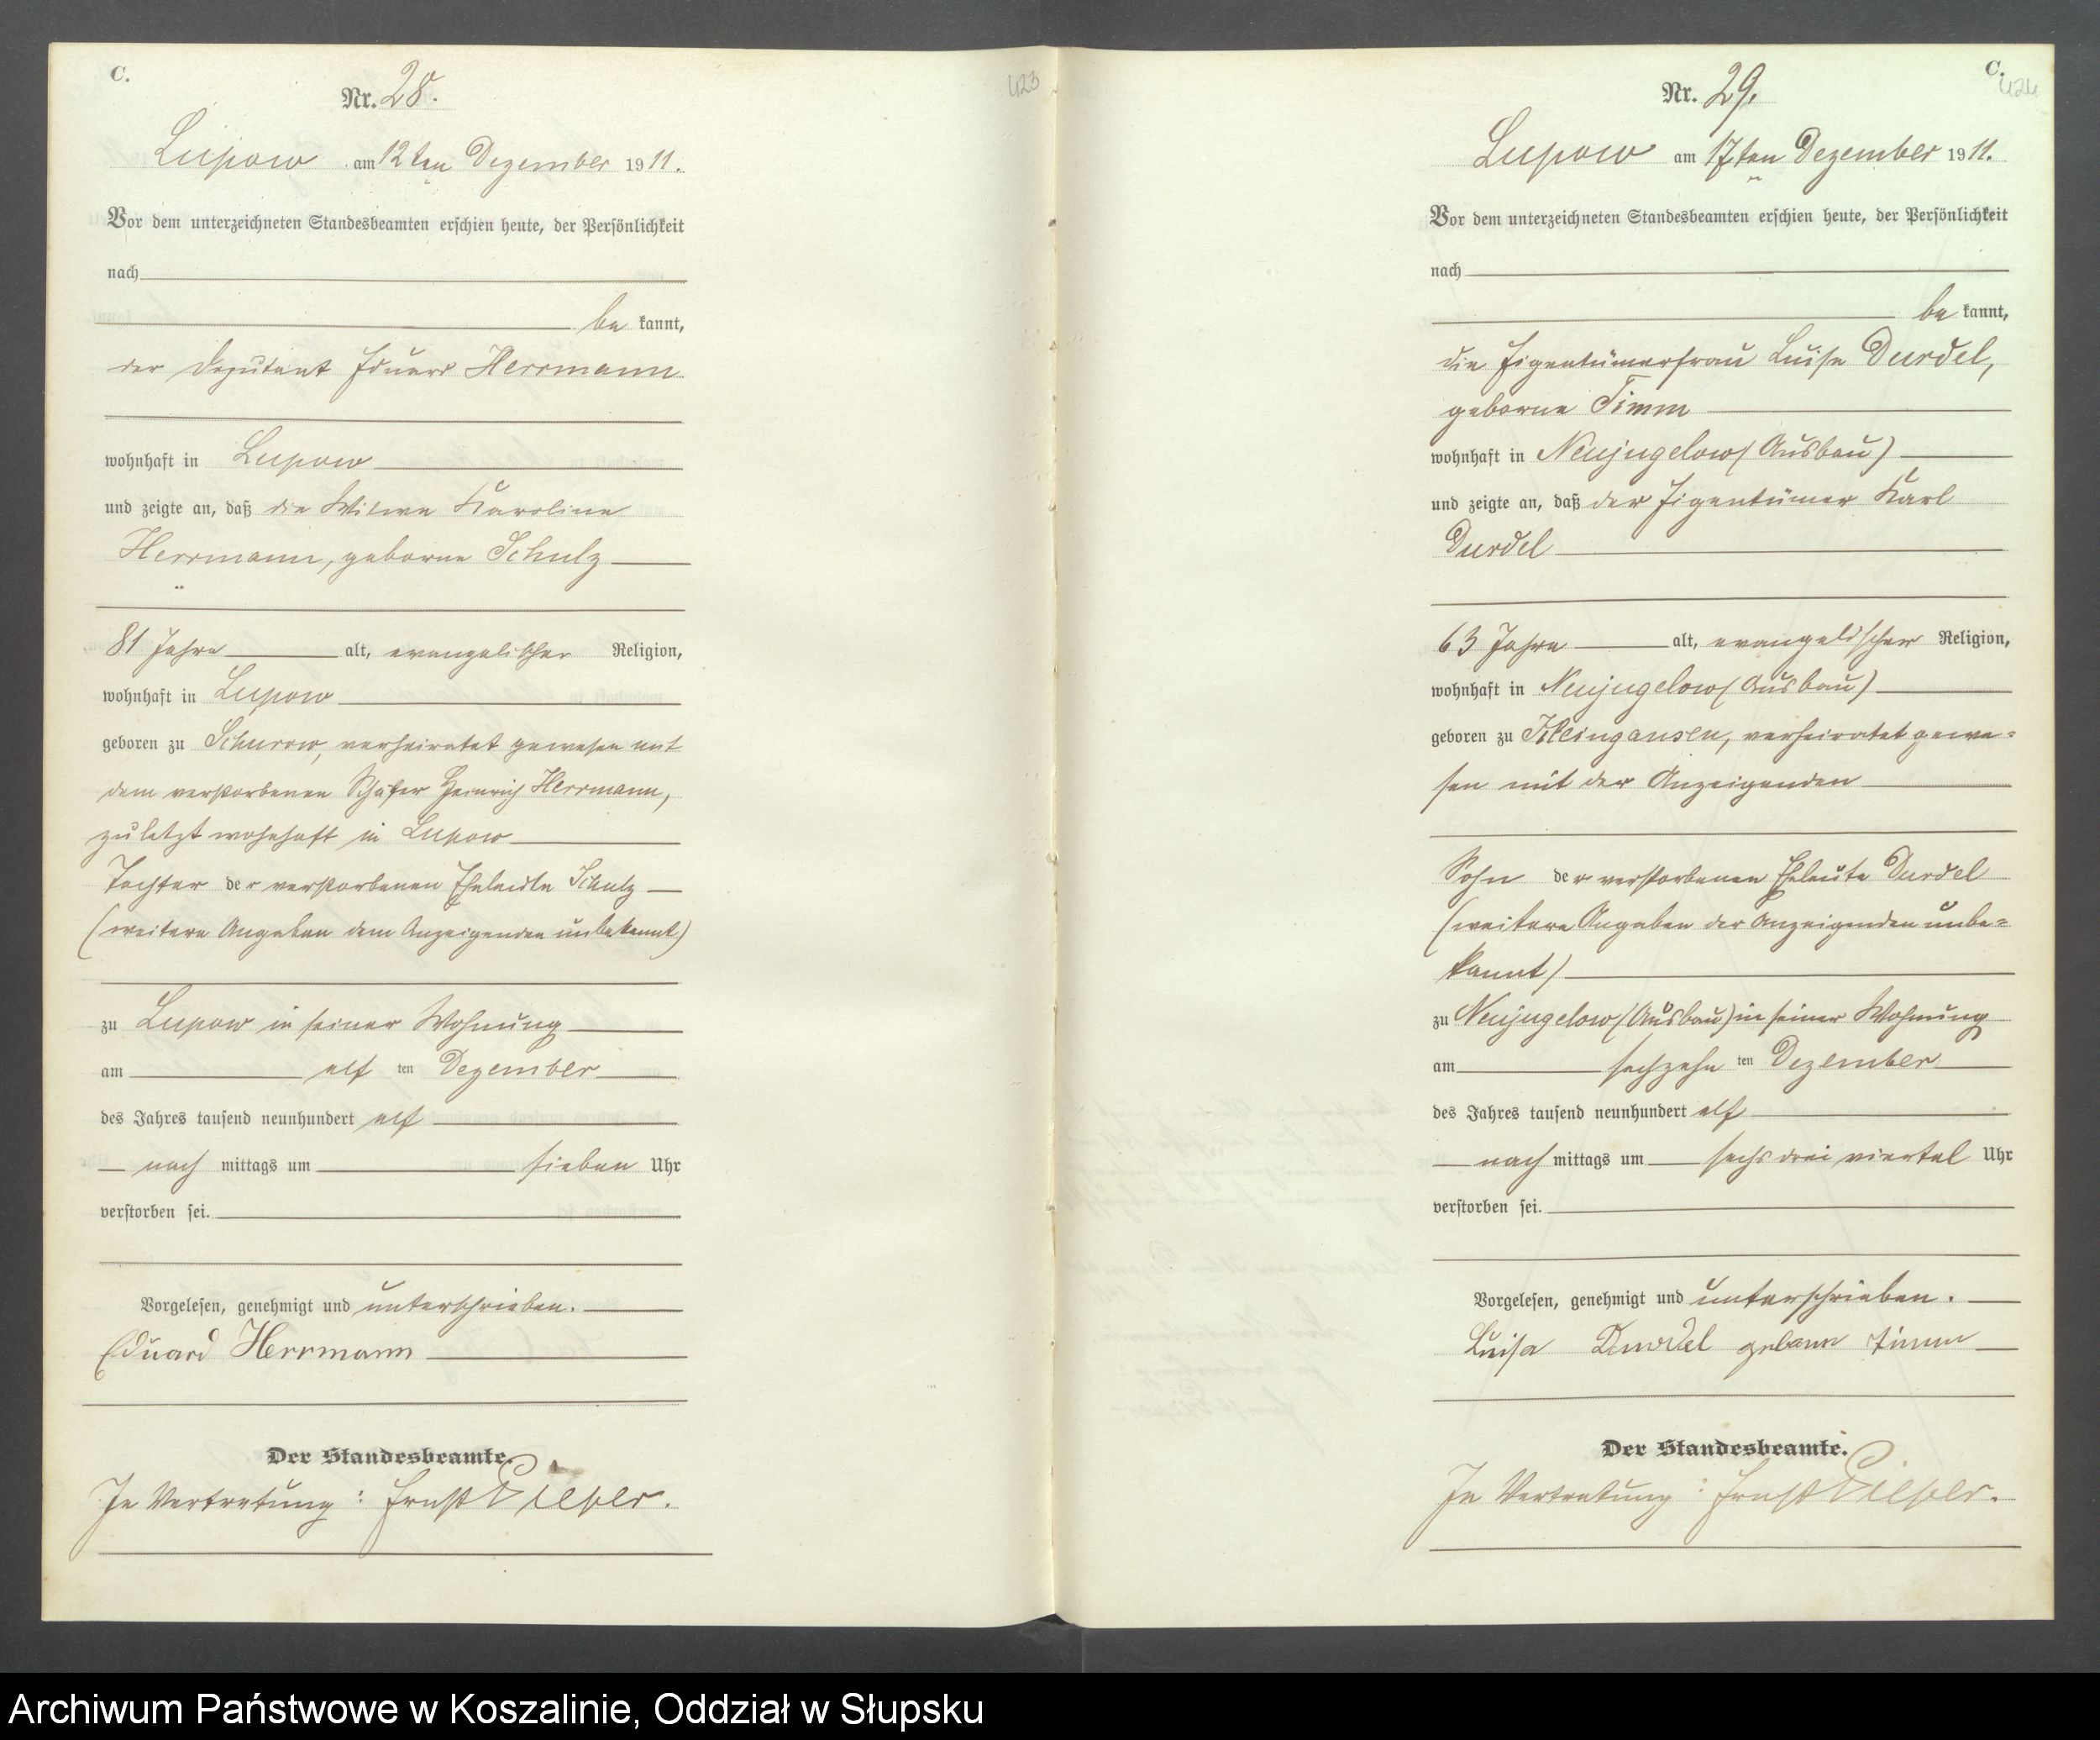 C.
423
Nr. 28.
Lupow am 12ten Dezember 1911.
Vor dem unterzeichneten Standesbeamten erschien heute, der Persönlichkeit
nach
be kannt,
der Deputant Eduard Herrmann
wohnhaft in Lupow
und zeigte an, daß die Witwe Karoline
Herrmann, geborne Schulz
81 Jahre alt, evangelischer Religion,
wohnhaft in Lupow
geboren zu Schurow, verheiratet gewesen mit
dem verstorbenen Schäfer Heinrich Herrmann,
zuletzt wohnhaft in Lupow
Tochter der verstorbenen Eheleute Schulz
(weitere Angaben dem Anzeigenden unbekannt)
zu Lupow in seiner Wohnung
am elf ten Dezember
des Jahres tausend neunhundert elf
nach mittags um sieben Uhr
verstorben sei.
Vorgelesen, genehmigt und unterschrieben.
Eduard Herrmann
Der Standesbeamte.
In Vertretung: Ernst Pieper.
C.
424
Nr. 29.
Lupow am 17ten Dezember 1911.
Vor dem unterzeichneten Standesbeamten erschien heute, der Persönlichkeit
nach
be kannt,
die Eigentümerfrau Luise Durdel,
geborne Timm
wohnhaft in Neujugelow (Ausbau)
und zeigte an, daß der Eigentümer Karl
Durdel
63 Jahre alt, evangelischer Religion,
wohnhaft in Neujugelow (Ausbau)
geboren zu Kleingansen, verheiratet gewe=
sen mit der Anzeigenden
Sohn der verstorbenen Eheleute Durdel
(weitere Angaben der Anzeigenden unbe=
kannt)
zu Neujugelow (Ausbau) in seiner Wohnung
am sechzehn ten Dezember
des Jahres tausend neunhundert elf
nach mittags um sechs drei viertel Uhr
verstorben sei.
Vorgelesen, genehmigt und unterschrieben.
Luise Durdel geborne Timm
Der Standesbeamte.
In Vertretung: Ernst Pieper.
Archiwum Państwowe w Koszalinie, Oddział w Słupsku